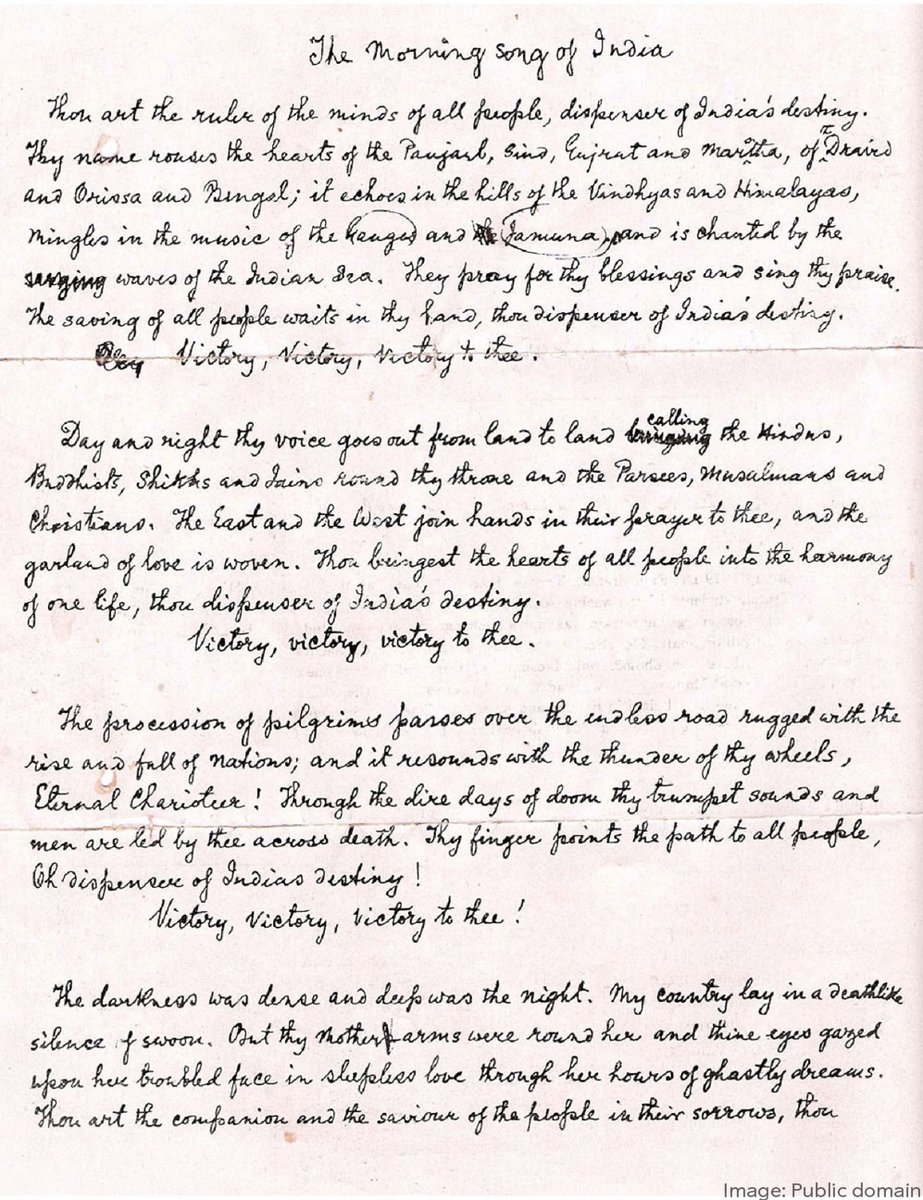 The Morning song of India
Thou art the ruler of the minds of all people, dispenser of India's destiny.
Thy name rouses the hearts of the Panjaub, Sind, Gujrat and Maratha, of Dravid
and Orissa and Bengal; it echoes in the hills of the Vindhyas and Himalayas,
mingles in the music of the Ganges and Jamuna and is chanted by the
waves of the Indian Sea. They pray for thy blessings and sing thy praise.
The saving of all people waits in thy hand, thou dispenser of India's destiny.
Victory, Victory, Victory to thee.
Day and night thy voice goes out from land to land calling the Hindus,
Buddhists, Shikhs and Jains round thy throne and the Parsees, Musulmans and
Christians. The East and the West join hands in their prayer to thee, and the
garland of love is woven. Thou bringest the hearts of all people into the harmony
of one life, thou dispenser of India's destiny.
Victory, victory, victory to thee.
The procession of pilgrims passes over the endless road rugged with the
rise and fall of nations; and it resounds with the thunder of thy wheels,
Eternal Charioteer! Through the dire days of doom thy trumpet sounds and
men are led by thee across death. Thy finger points the path to all people,
Oh dispenser of Indias destiny!
Victory, Victory, Victory to thee!
The darkness was dense and deep was the night. My country lay in a deathlike
silence of swoon. But thy Mother arms were round her and thine eyes gazed
upon her troubled face in sleepless love through her hours of ghastly dreams.
Thou art the companion and the saviour of the people in their sorrows, thou
Image: Public domain